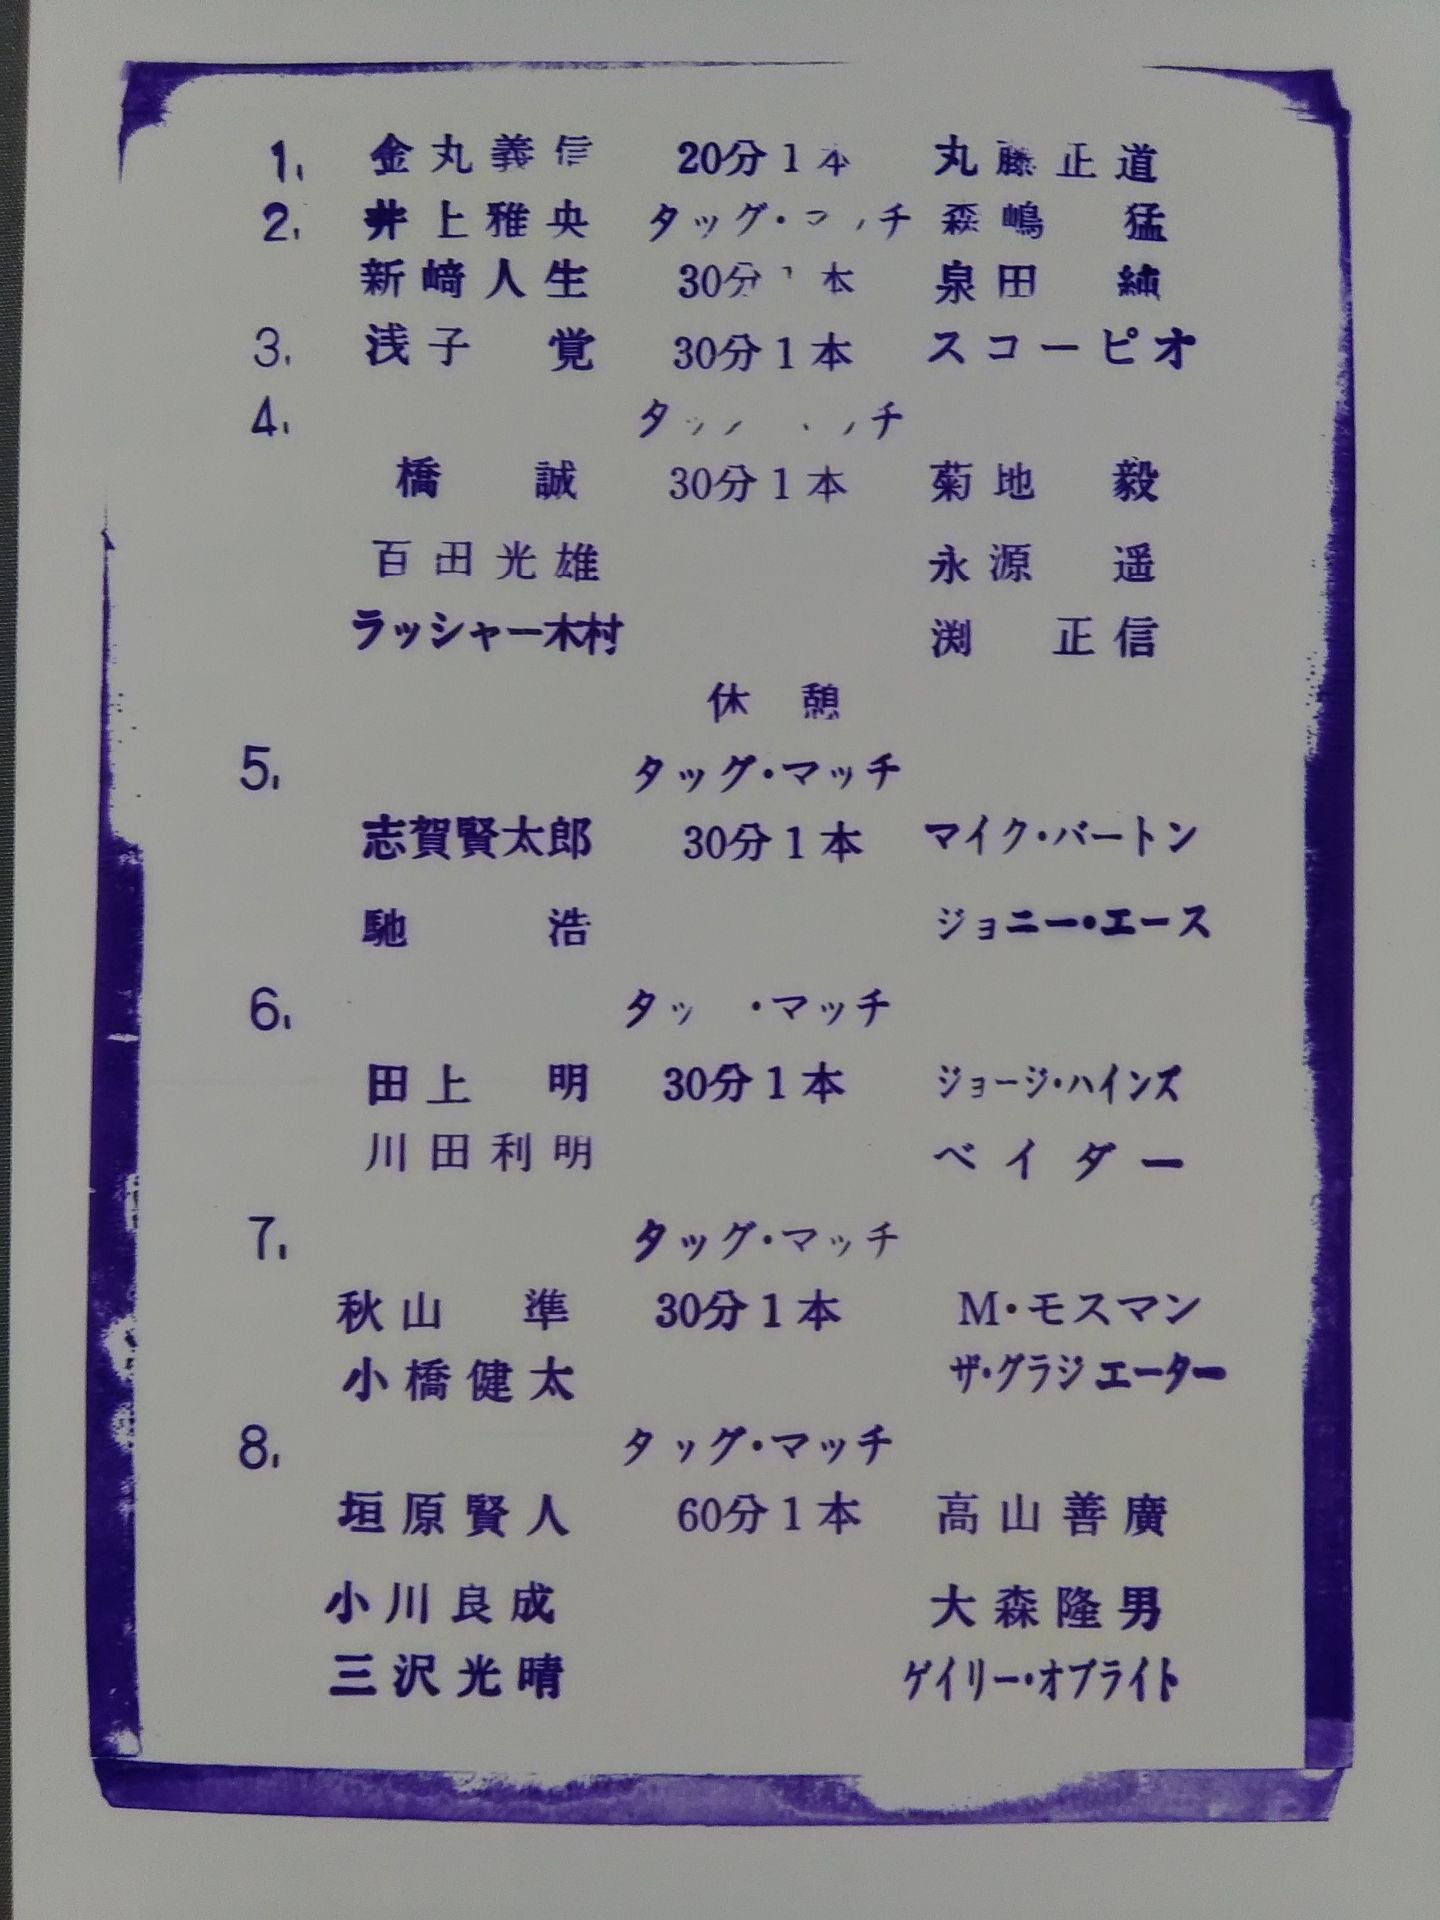 1. 金丸義信 20分1本 丸藤正道
2. 井上雅央 タッグ・マッチ 森嶋 猛
新崎人生 30分1本 泉田 純
3. 浅子 覚 30分1本 スコーピオ
4. タッグ・マッチ
橋 誠 30分1本 菊地 毅
百田光雄 永源 遥
ラッシャー木村 渕 正信
休憩
5. タッグ・マッチ
志賀賢太郎 30分1本 マイク・バートン
馳 浩 ジョニー・エース
6. タッグ・マッチ
田上 明 30分1本 ジョージ・ハインズ
川田利明 ベイダー
7. タッグ・マッチ
秋山 準 30分1本 M・モスマン
小橋健太 ザ・グラジエーター
8. タッグ・マッチ
垣原賢人 60分1本 高山善廣
小川良成 大森隆男
三沢光晴 ゲイリー・オブライト